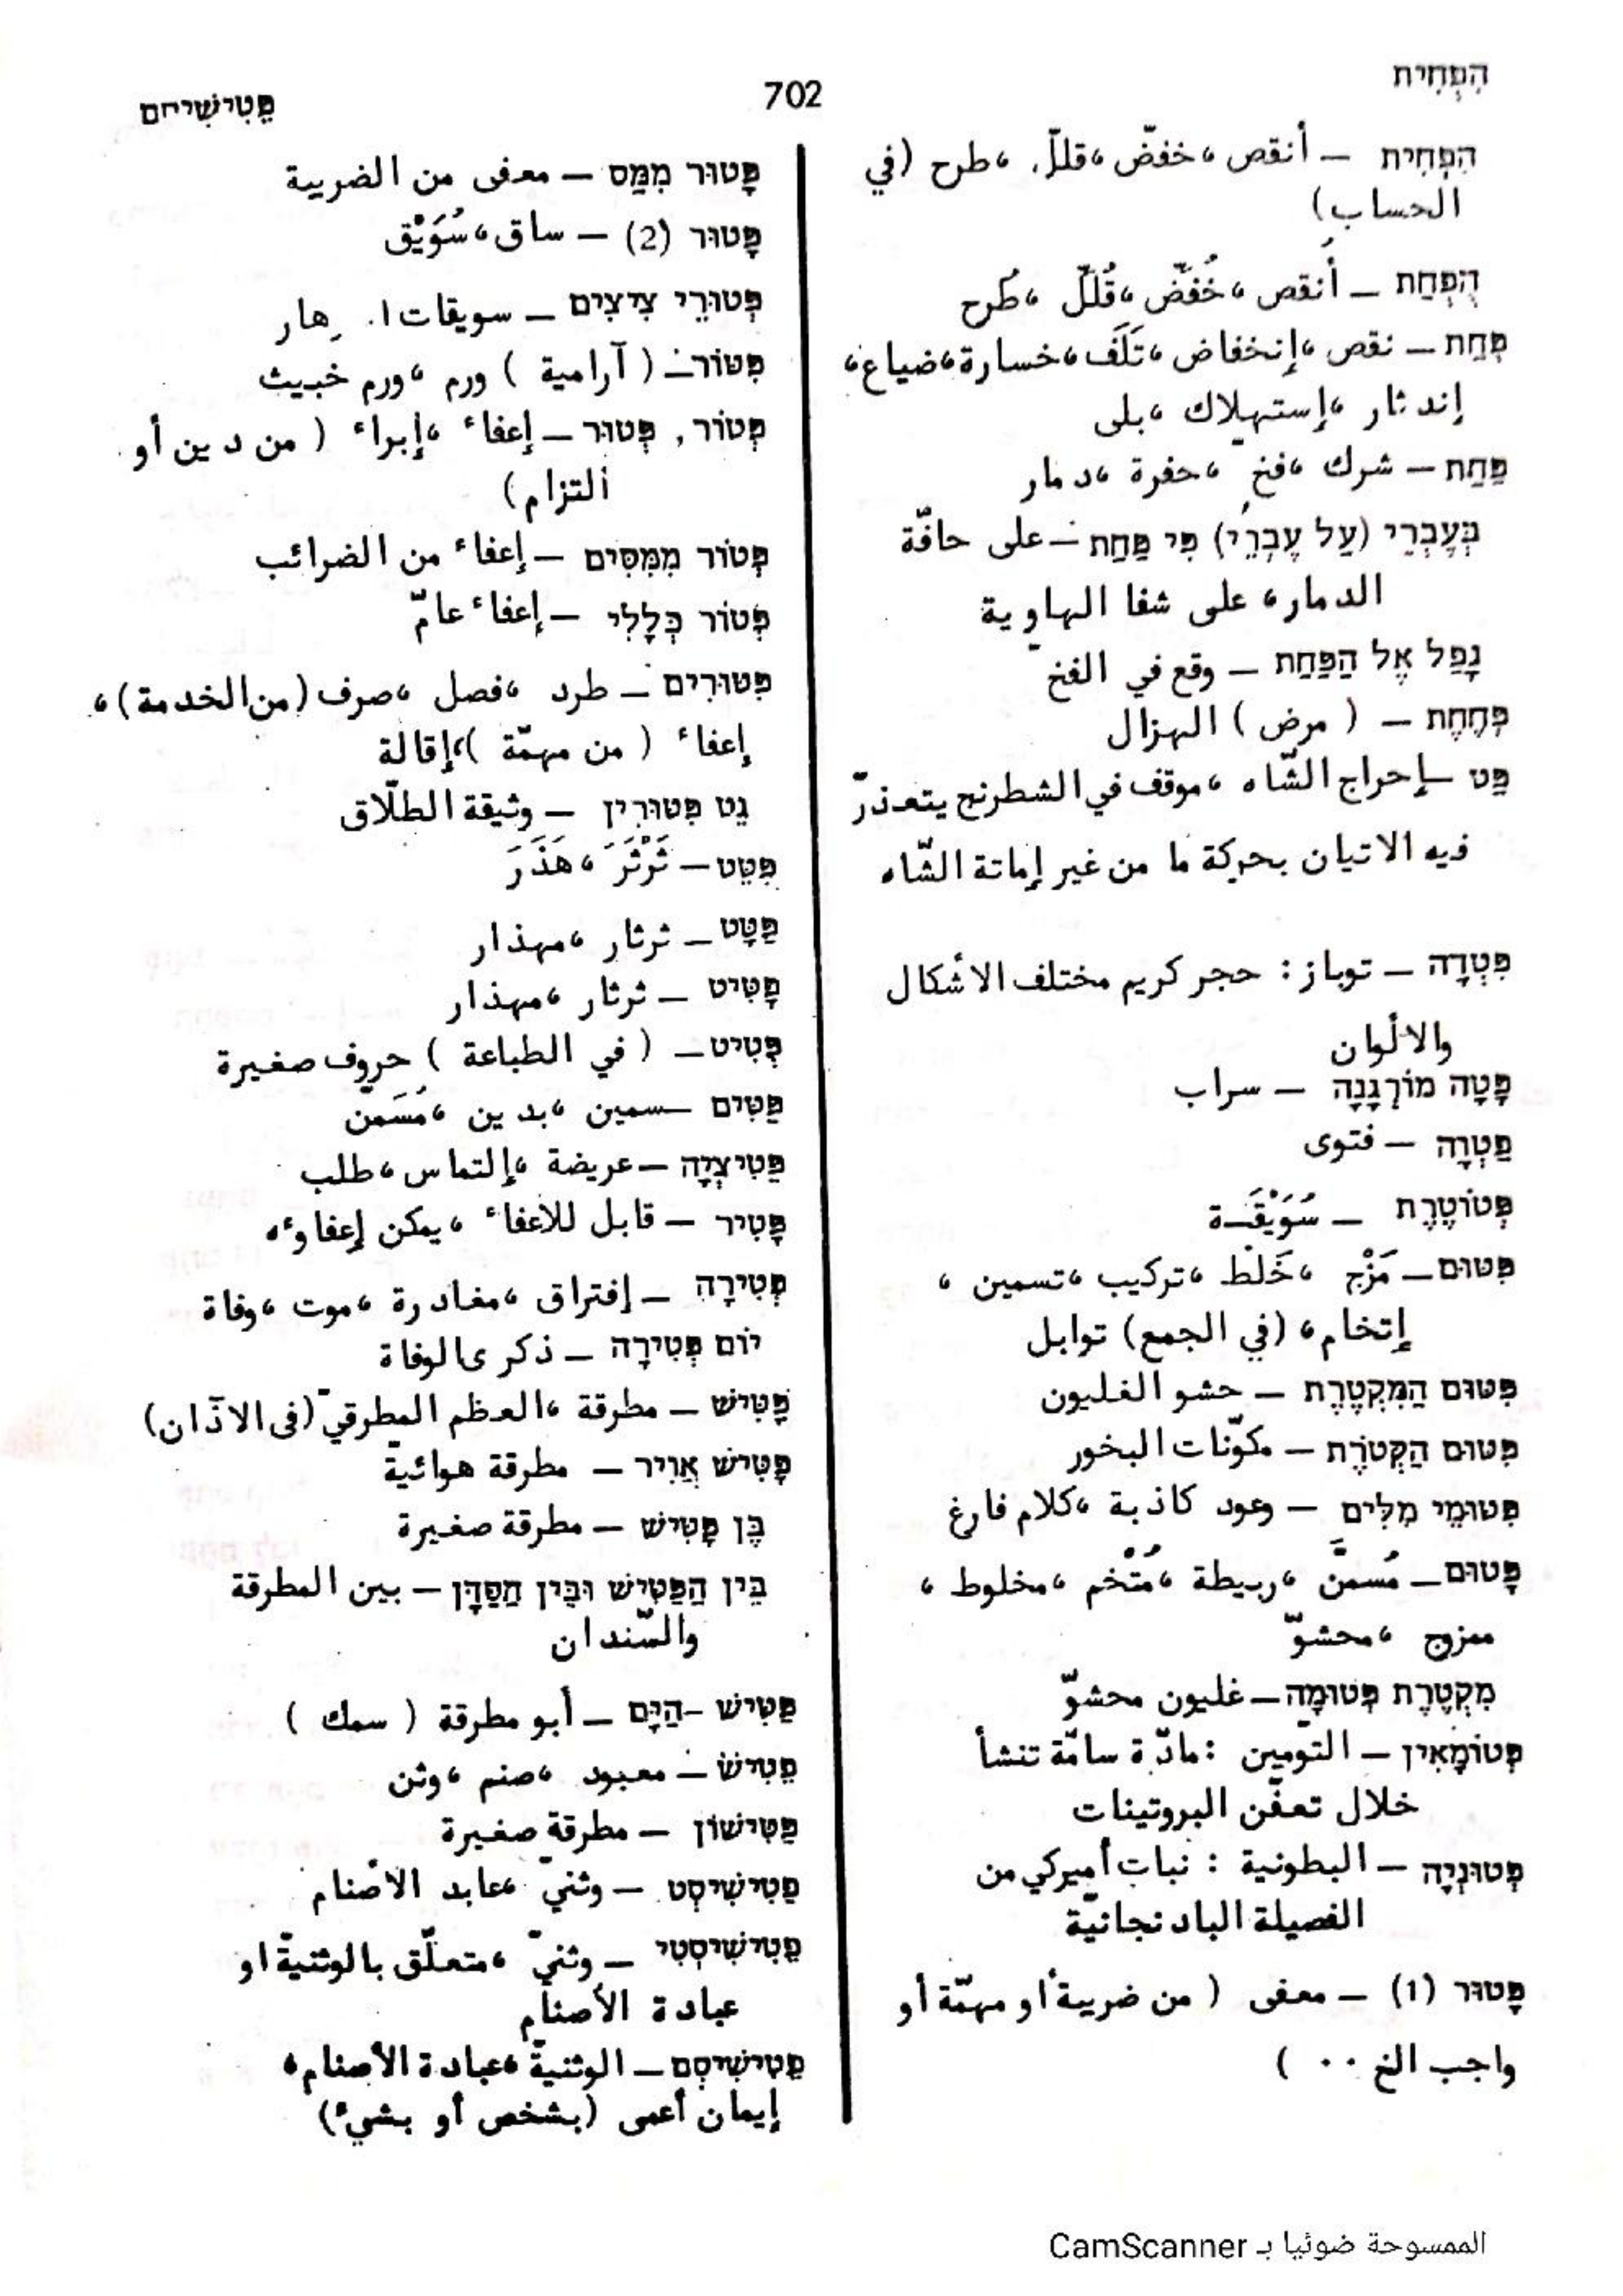 הִפְחִית
702
פֶטִישִׁיחם
הִפְחִית – أنقص ، خفّض ، قلّل ، طرح (في
الحساب)
הֻפְחַת – أُنقص ، خُفّض ، قُلّل ، طُرح
פְּחַת – نقص ، إنخفاض ، تَلَف ، خسارة ، ضياع ،
إندثار ، إستهلاك ، بلى
פַּחַת – شرك ، فخ ، حفرة ، دمار
בְּעֶבְרֵי (עַל עֶבְרֵי) פִּי פַּחַת – على حافّة
الدمار ، على شفا الهاوية
נָפַל אֶל הַפַּחַת – وقع في الفخ
פְּחֶתֶת – ( مرض ) الهزال
פַּט – إحراج الشّاه ، موقف في الشطرنج يتعذّر
فيه الاتيان بحركة ما من غير إماتة الشّاه
פִּטְדָה – توباز : حجر كريم مختلف الأشكال
والألوان
פָטָה מוֹרְגָנָה – سراب
פַטְוָה – فتوى
פְּטוֹטֶרֶת – سُوَيْقَـة
פִּטּוּם – مَزْج ، خَلْط ، تركيب ، تسمين ،
إتخام ، (في الجمع) توابل
פִּטּוּם הַמִּקְטֶרֶת – حشو الغليون
פִּטּוּם הַקְּטֹרֶת – مكوّنات البخور
פִּטּוּמֵי מִלִּים – وعود كاذبة ، كلام فارغ
פָּטוּם – مُسَمَّن ، ربيطة ، مُتْخم ، مخلوط ،
ممزوج ، محشوّ
מִקְטֶרֶת פְּטוּמָה – غليون محشوّ
פְּטוֹמָאִין – التّومين : مادّة سامّة تنشأ
خلال تعفّن البروتينات
פֶּטוּנְיָה – البطونية : نبات أميركي من
الفصيلة الباذنجانيّة
פָּטוּר (1) – معفى ( من ضريبة أو مهمّة أو
واجب الخ ۰۰ )
פָּטוּר מִמַּס – معفى من الضريبة
פָּטוּר (2) – ساق ، سُوَيْق
פְּטוּרֵי צִיצִים – سويقات ا. هار
פִּטּוֹר – ( آرامية ) ورم ، ورم خبيث
פְּטוֹר, פְּטוּר – إعفاء ، إبراء ( من دين أو
ألتزام)
פְּטוֹר מִמִּסִּים – إعفاء من الضرائب
פְּטוֹר כְּלָלִי – إعفاء عامّ
פִּטּוּרִים – طرد ، فصل ، صرف (من الخدمة) ،
إعفاء ( من مهمّة ) ، إقالة
גֵּט פִּטּוּרִין – وثيقة الطلّاق
פִּטֵּט – ثَرْثَرَ ، هَذَرَ
פַּטָּט – ثرثار ، مهذار
פָּטִיט – ثرثار ، مهذار
פְּטִיט – ( في الطباعة ) حروف صغيرة
פַּטִּים – سمين ، بدين ، مُسَمّن
פֶּטִיצְיָה – عريضة ، إلتماس ، طلب
פָּטִיר – قابل للاعفاء ، يمكن إعفاوءه
פְּטִירָה – إفتراق ، مغادرة ، موت ، وفاة
יוֹם פְּטִירָה – ذكرى الوفاة
פַּטִּישׁ – مطرقة ، العظم المطرقيّ (فى الآذان)
פַּטִּישׁ אֲוִיר – مطرقة هوائيةّ
בֶּן פַּטִּישׁ – مطرقة صغيرة
בֵּין הַפַּטִּישׁ וּבֵין הַסַּדָּן – بين المطرقة
والسّندان
פַּטִּישׁ-הַיָּם – أبو مطرقة ( سمك )
פֶטִישׁ – معبود ، صنم ، وثن
פַּטִּישׁוֹן – مطرقة صغيرة
פֶטִישִׁיסְט – وثنيّ ، عابد الأصنام
פֶטִישִׁיסְטִי – وثنيّ ، متعلّق بالوثنيةّ او
عبادة الأصنام
פֶטִישִׁיסְם – الوثنيةّ ، عبادة الأصنام ،
إيمان أعمى (بشخص أو بشيء)
الممسوحة ضوئيا بـ CamScanner